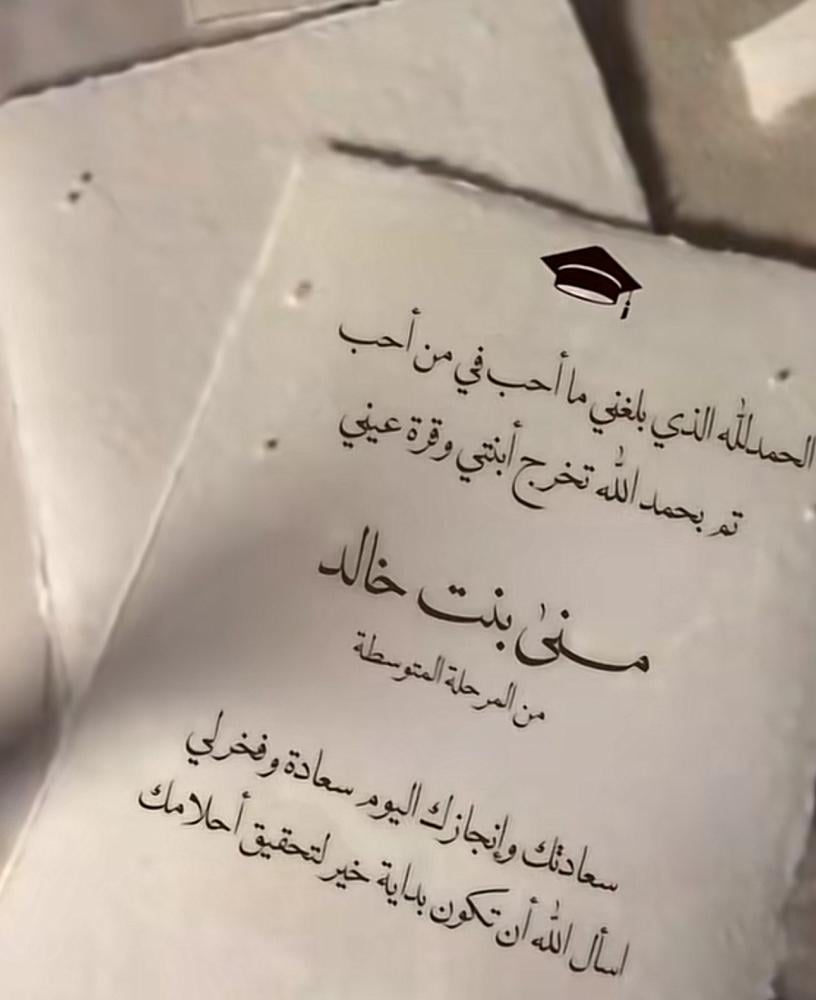 الحمدلله الذي بلغني ما أحب في من أحب
تم بحمد الله تخرج أبنتي وقرة عيني
منى بنت خالد
من المرحلة المتوسطة
سعادتك وإنجازك اليوم سعادة وفخر لي
اسأل الله أن تكون بداية خير لتحقيق أحلامك